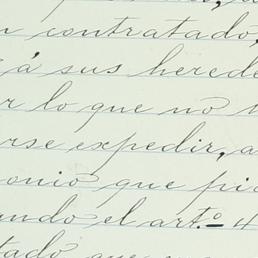 n contratado,
á sus herede
r lo que no
rse expedir, a
onio que pi
ndo el art.º 4
tado que